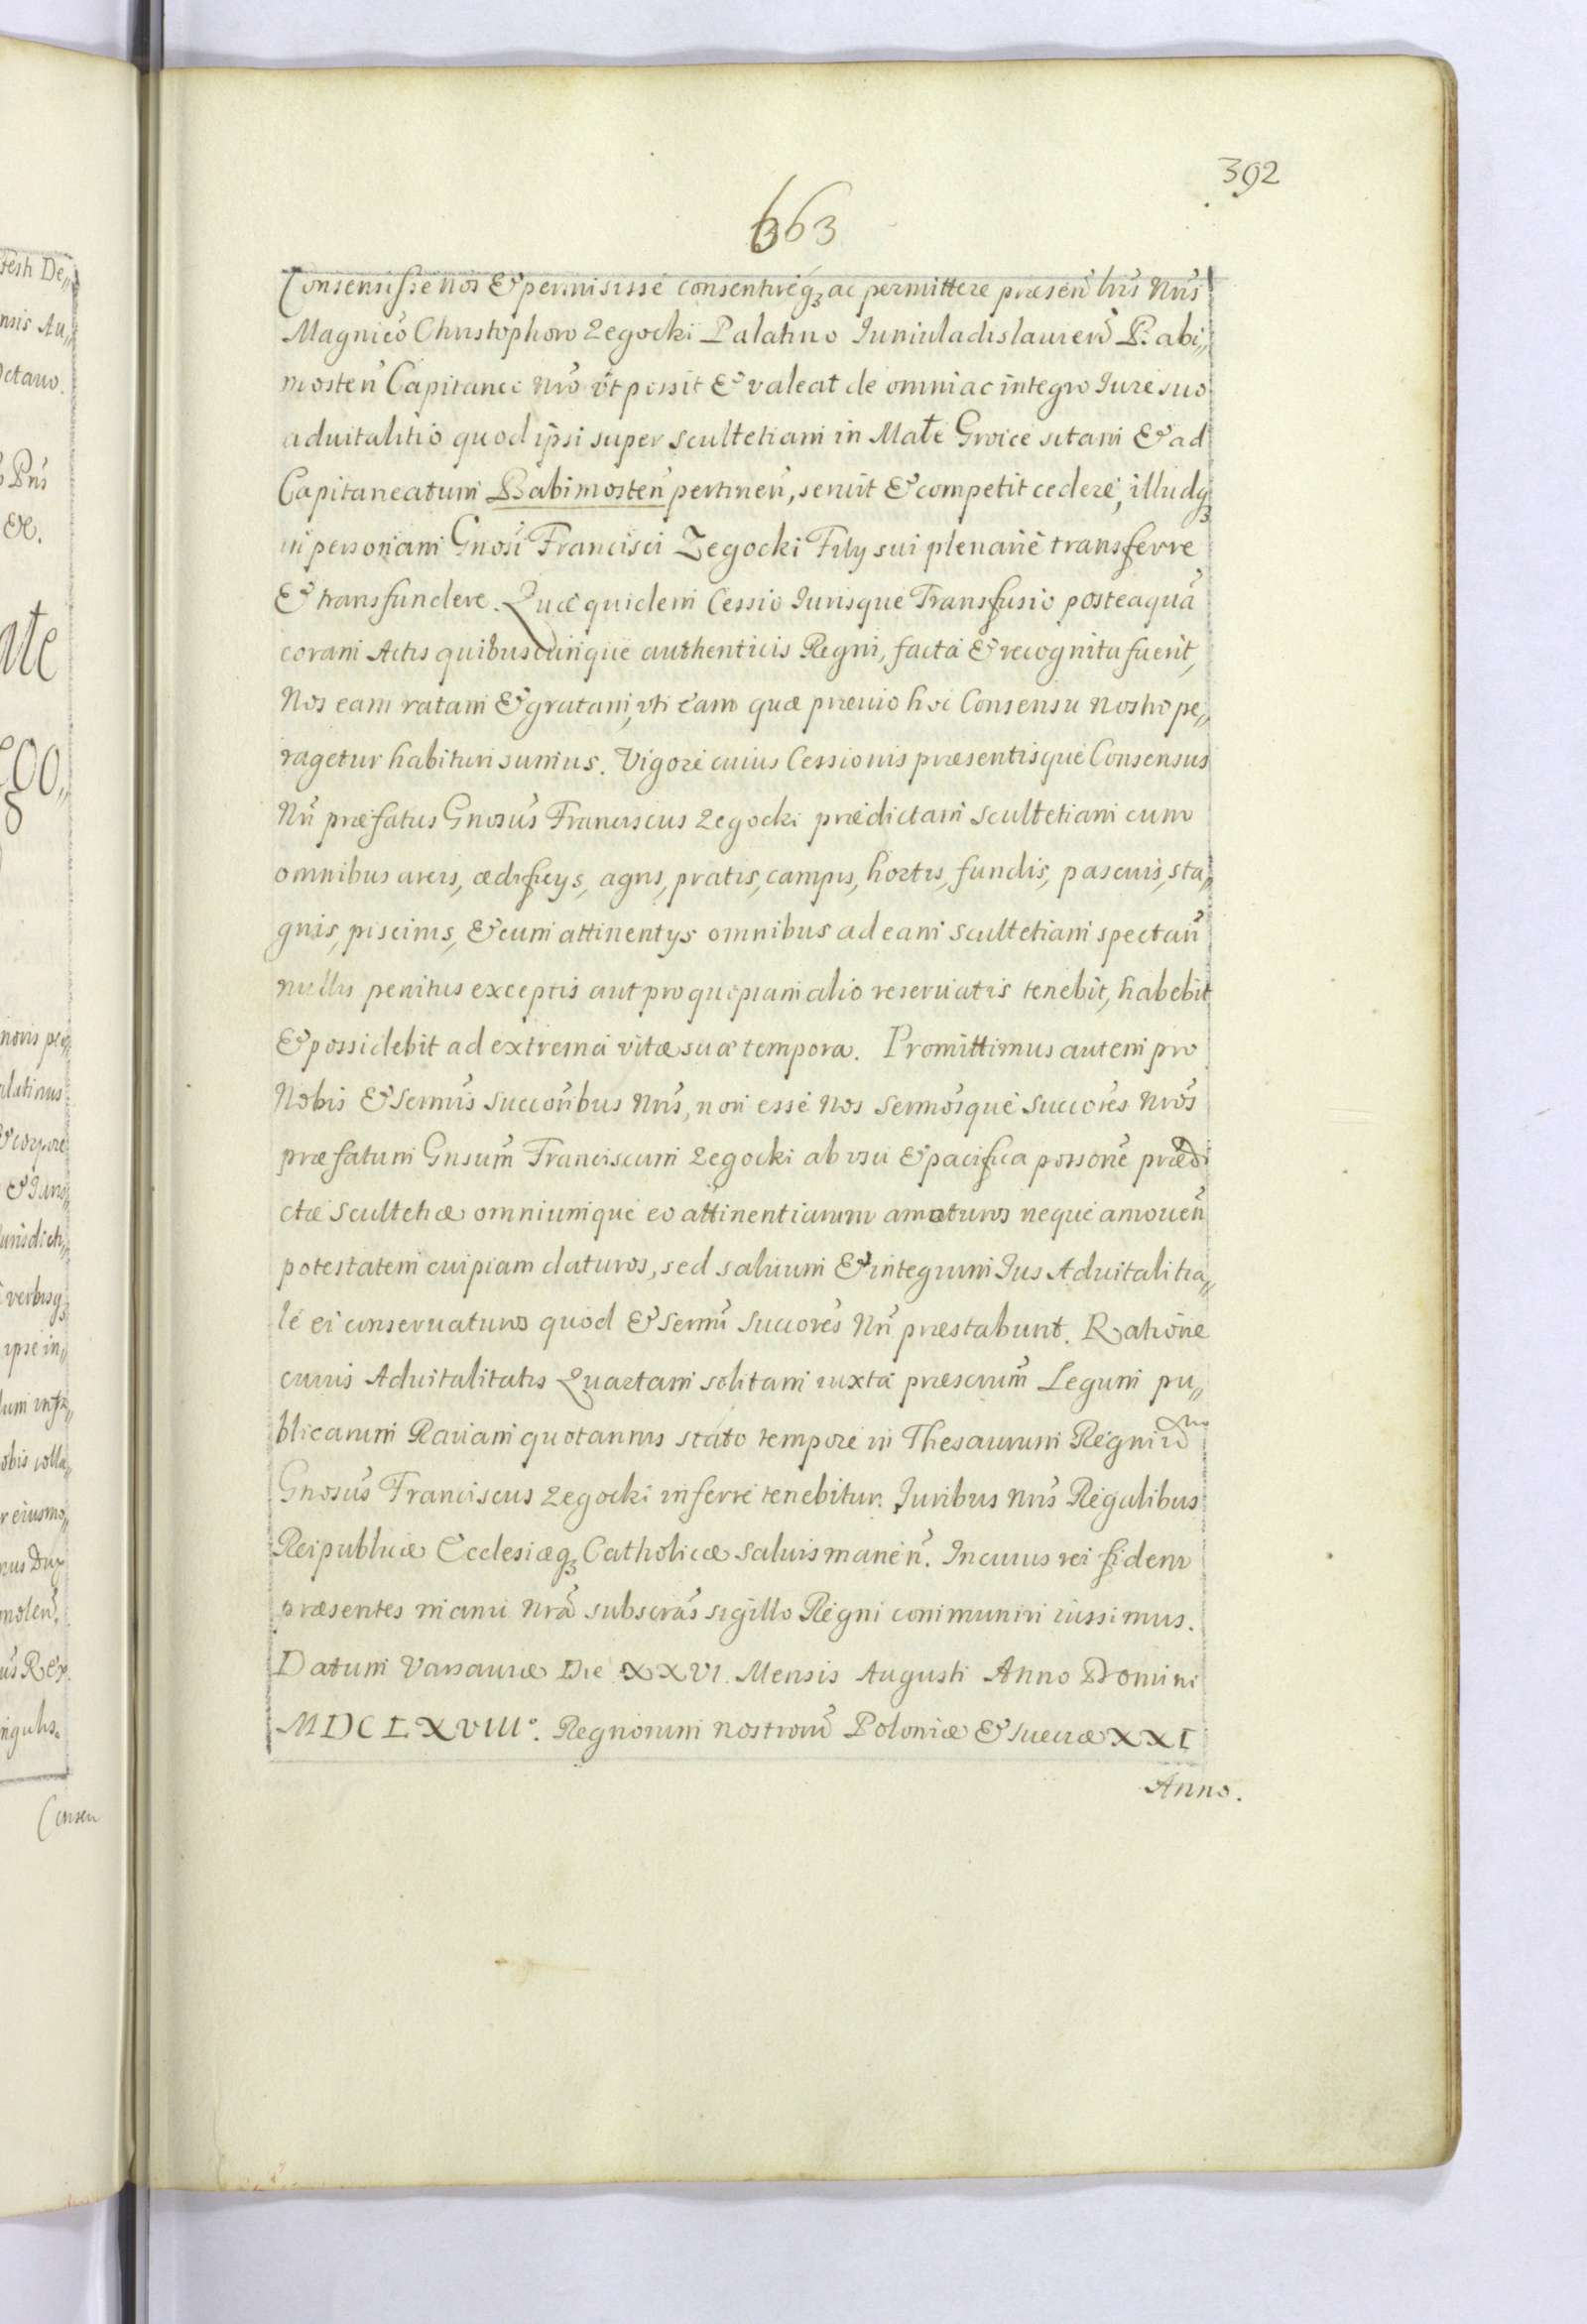 392
663
Consensisse nos & permisisse consentireqꝫ ac permittere præseñ lris Nris
Magnico Christophoro Zegocki Palatino Iuniuladislauieñ Babi„
mosteñ Capitaneo Nro vt possit & valeat de omni ac integro Iure suo
aduitalitio quod ipsi super scultetiam in Małe Groice sitam & ad
Capitaneatum Babimosteñ pertineñ, seruit & competit cedere, illudqꝫ
in personam Gnosi Francisci Zegocki Filij sui plenarie transferre
& transfundere. Quæ quidem Cessio Iurisque Transfusio posteaquã
coram Actis quibuscunque authenticis Regni, facta & recognita fuerit,
Nos eam ratam & gratam, vti eam quæ præuio hoc Consensu Nostro pe„
ragetur habituri sumus. Vigore cuius Cessionis præsentisque Consensus
Nri præfatus Gnosus Franciscus Zegocki prædictam scultetiam cum
omnibus areis, ædificijs, agris, pratis, campis, hortis, fundis, pascuis, sta„
gnis, piscinis, & cum attinentijs omnibus ad eam scultetiam spectañ
nullis penitus exceptis aut pro quopiam alio reseruatis tenebit, habebit
& possidebit ad extrema vitæ suæ tempora. Promittimus autem pro
Nobis & Sermis Succoribus Nris, non esse Nos Sermosque Succores Nros
præfatum Gnsum Franciscum Zegocki ab vsu & pacifica possone prædi
ctæ scultetiæ omniumque eo attinentiarum amoturos neque amoueñ
potestatem cuipiam daturos, sed saluum & integrum Ius Aduitalitia„
le ei conseruaturos quod & Sermi Succores Nri præstabunt. Ratione
cuius Aduitalitatis Quartam solitam iuxta præscrium Legum pu„
blicarum Rauam quotannis stato tempore in Thesaurum Regni idem
Gnosus Franciscus Zegocki inferre tenebitur. Iuribus Nris Regalibus
Reipublicæ Ecclesiæqꝫ Catholicæ saluis maneñ. In cuius rei fidem
præsentes manu Nra subscras sigillo Regni communiri iussimus.
Datum Varsauiæ Die XXVI. Mensis Augusti Anno Domini
MDCLXVIII°. Regnorum nostrorũ Poloniæ & Sueciæ XXI
Anno.